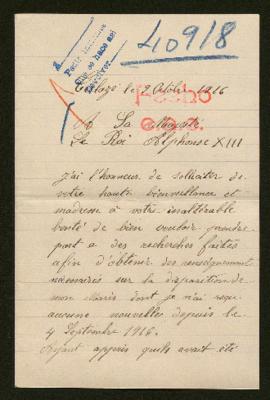 40918
le 9 Octobre 1916
Hecho
A Sa Majesté
Le Roi Alphonse XIII
J'ai l'honneur de solliciter de
votre haute bienveillance et
m'adresse à votre inaltérable
bonté de bien vouloir prendre
part a des recherches faites
afin d'obtenir des renseignements
nécessaires sur la disposition de
mon dont je n'ai reçu
aucune nouvelles depuis le
4 Septembre 1916.
Ayant appris qu'ils avait été